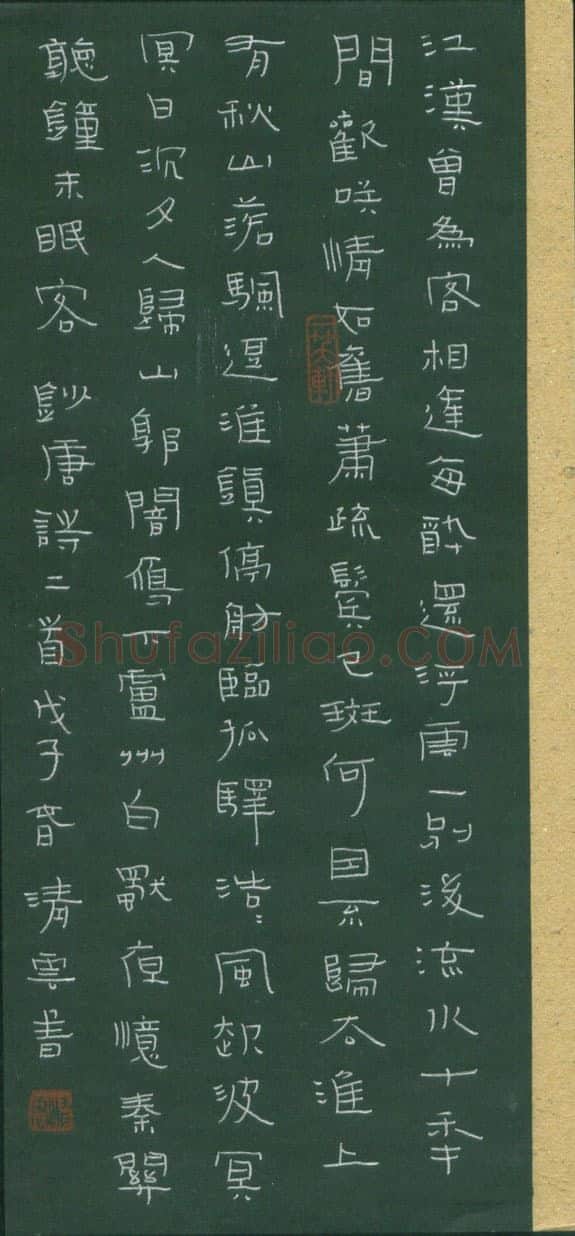 江漢曾為客相逢每醉還浮雲一別後流水十年
間歡咲情如舊蕭疏鬢已斑何因不歸去淮上
有秋山落颿逗淮鎮停舫臨孤驛浩〻風起波冥
冥日沉夕人歸山郭闇鴈下蘆洲白獨夜憶秦關
聽鐘未眠客 鈔唐詩二首戊子春清雲書
Shufaziliao.COM